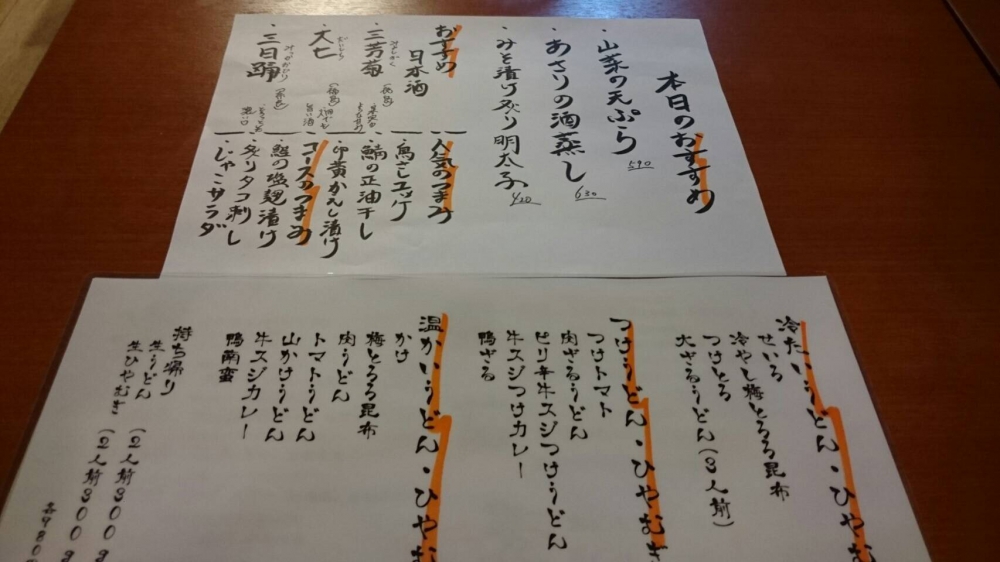 本日のおすすめ
・山菜の天ぷら 590
・あさりの酒蒸し 630
・みそ漬け炙り明太子 420
おすすめ
日本酒
・三芳菊
(徳島)
・大七
(福島)
・三日踊
人気のつまみ
・鳥さしユッケ
・鯖の正油干し
・卵黄かえし漬け
コースのつまみ
・鮭の塩麹漬け
・炙りタコ刺し
・じゃこサラダ
冷たいうどん・ひやむぎ
せいろ
冷やし梅とろろ昆布
つけとろ
大ざるうどん(3人前)
つけうどん・ひやむぎ
つけトマト
肉ざるうどん
ピリ辛牛スジつけうどん
牛スジつけカレー
鴨ざる
温かいうどん・ひやむ
かけ
梅とろろ昆布
肉うどん
トマトうどん
山かけうどん
牛スジカレー
鴨南蛮
持ち帰り
生うどん (2人前300g
生ひやむぎ (2人前300g